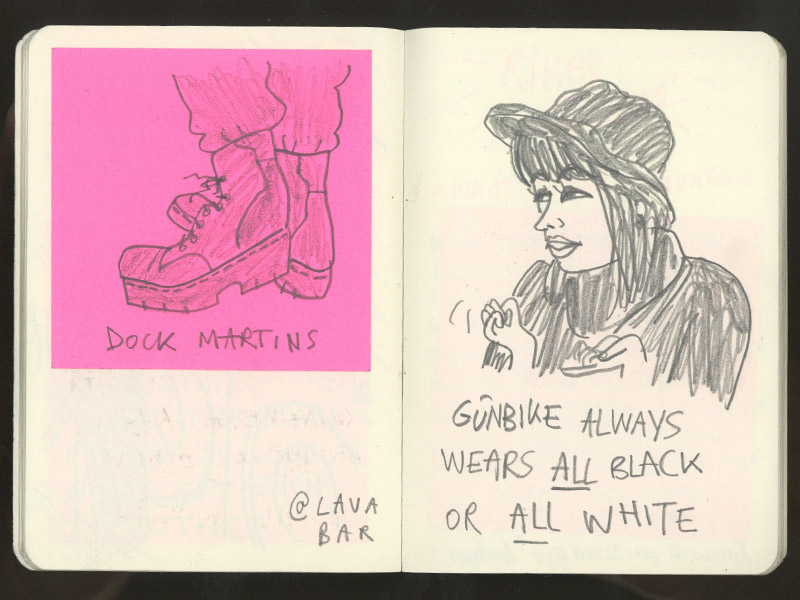 DOCK MARTINS
@LAVA
BAR
GÜNBIKE ALWAYS
WEARS ALL BLACK
OR ALL WHITE